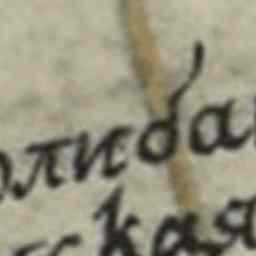 олиба
ская